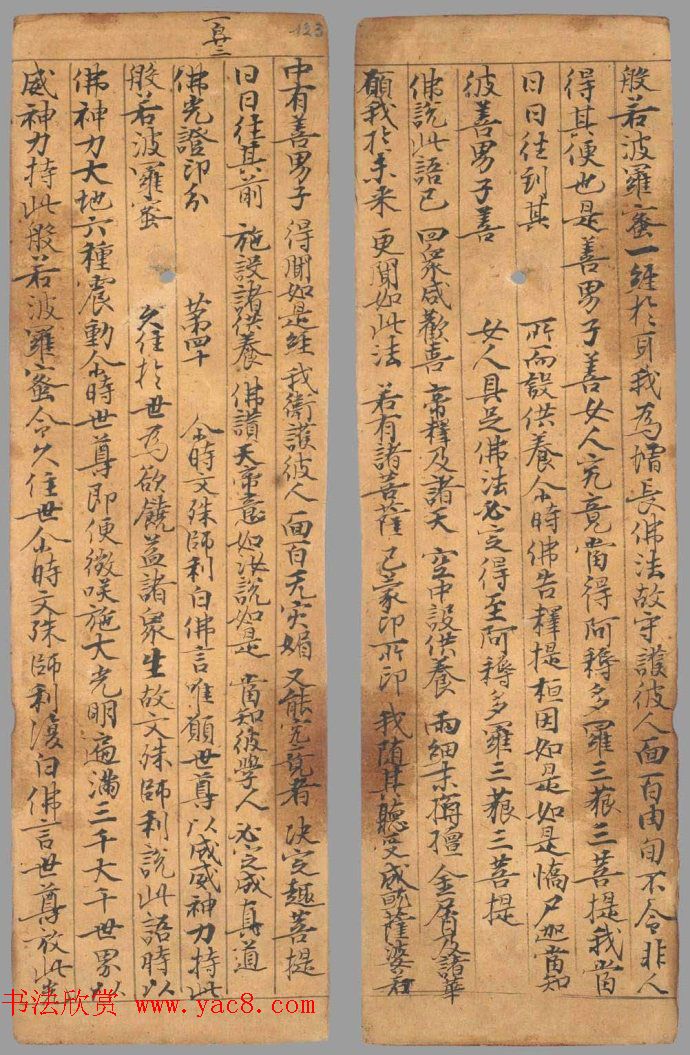 般若波羅蜜一經於身我為增長佛法故守護彼人面百由旬不令非人
得其便也是善男子善女人究竟當得阿耨多羅三藐三菩提我當
日日往到其 所而設供養尒時佛告釋提桓因如是如是憍尸迦當知
彼善男子善 女人具足佛法必定得至阿耨多羅三藐三菩提
佛說此語已 四眾咸歡喜 帝釋及諸天 空中設供養 雨細末栴檀 金屑及諸華
願我於未來 更聞如此法 若有諸菩薩 已蒙印所印 我隨其聽受 成就薩波若
123
一百二
中有善男子 得聞如是經 我衛護彼人 面百无灾 又能 者 决定趣菩提
日日往其前 施設諸供養 佛讚天帝意 如汝說如是 當知彼學人 必定成真道
佛光證印分 第四十 尒時文殊師利白佛言唯願世尊以威威神力持此
般若波羅蜜 久住於世為欲饒益諸眾生故文殊師利說此語時以
佛神力大地六種震動尒時世尊即便微咲施大光明遍滿三千大千世界以
威神力持此般若波羅蜜令久住世尒時文殊師利復白佛言世尊放此光
书法欣赏 www.yac8.com